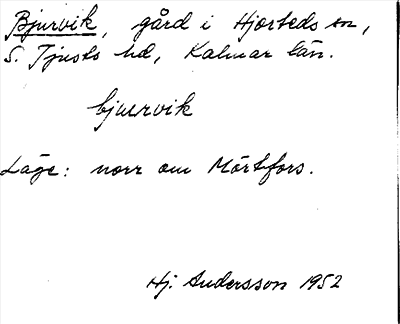 Bjurvik, gård i Hjorteds sn,
S. Tjusts hd, Kalmar län.
bjurvik
Läge: norr om Mörtfors.
Hj. Andersson 1952